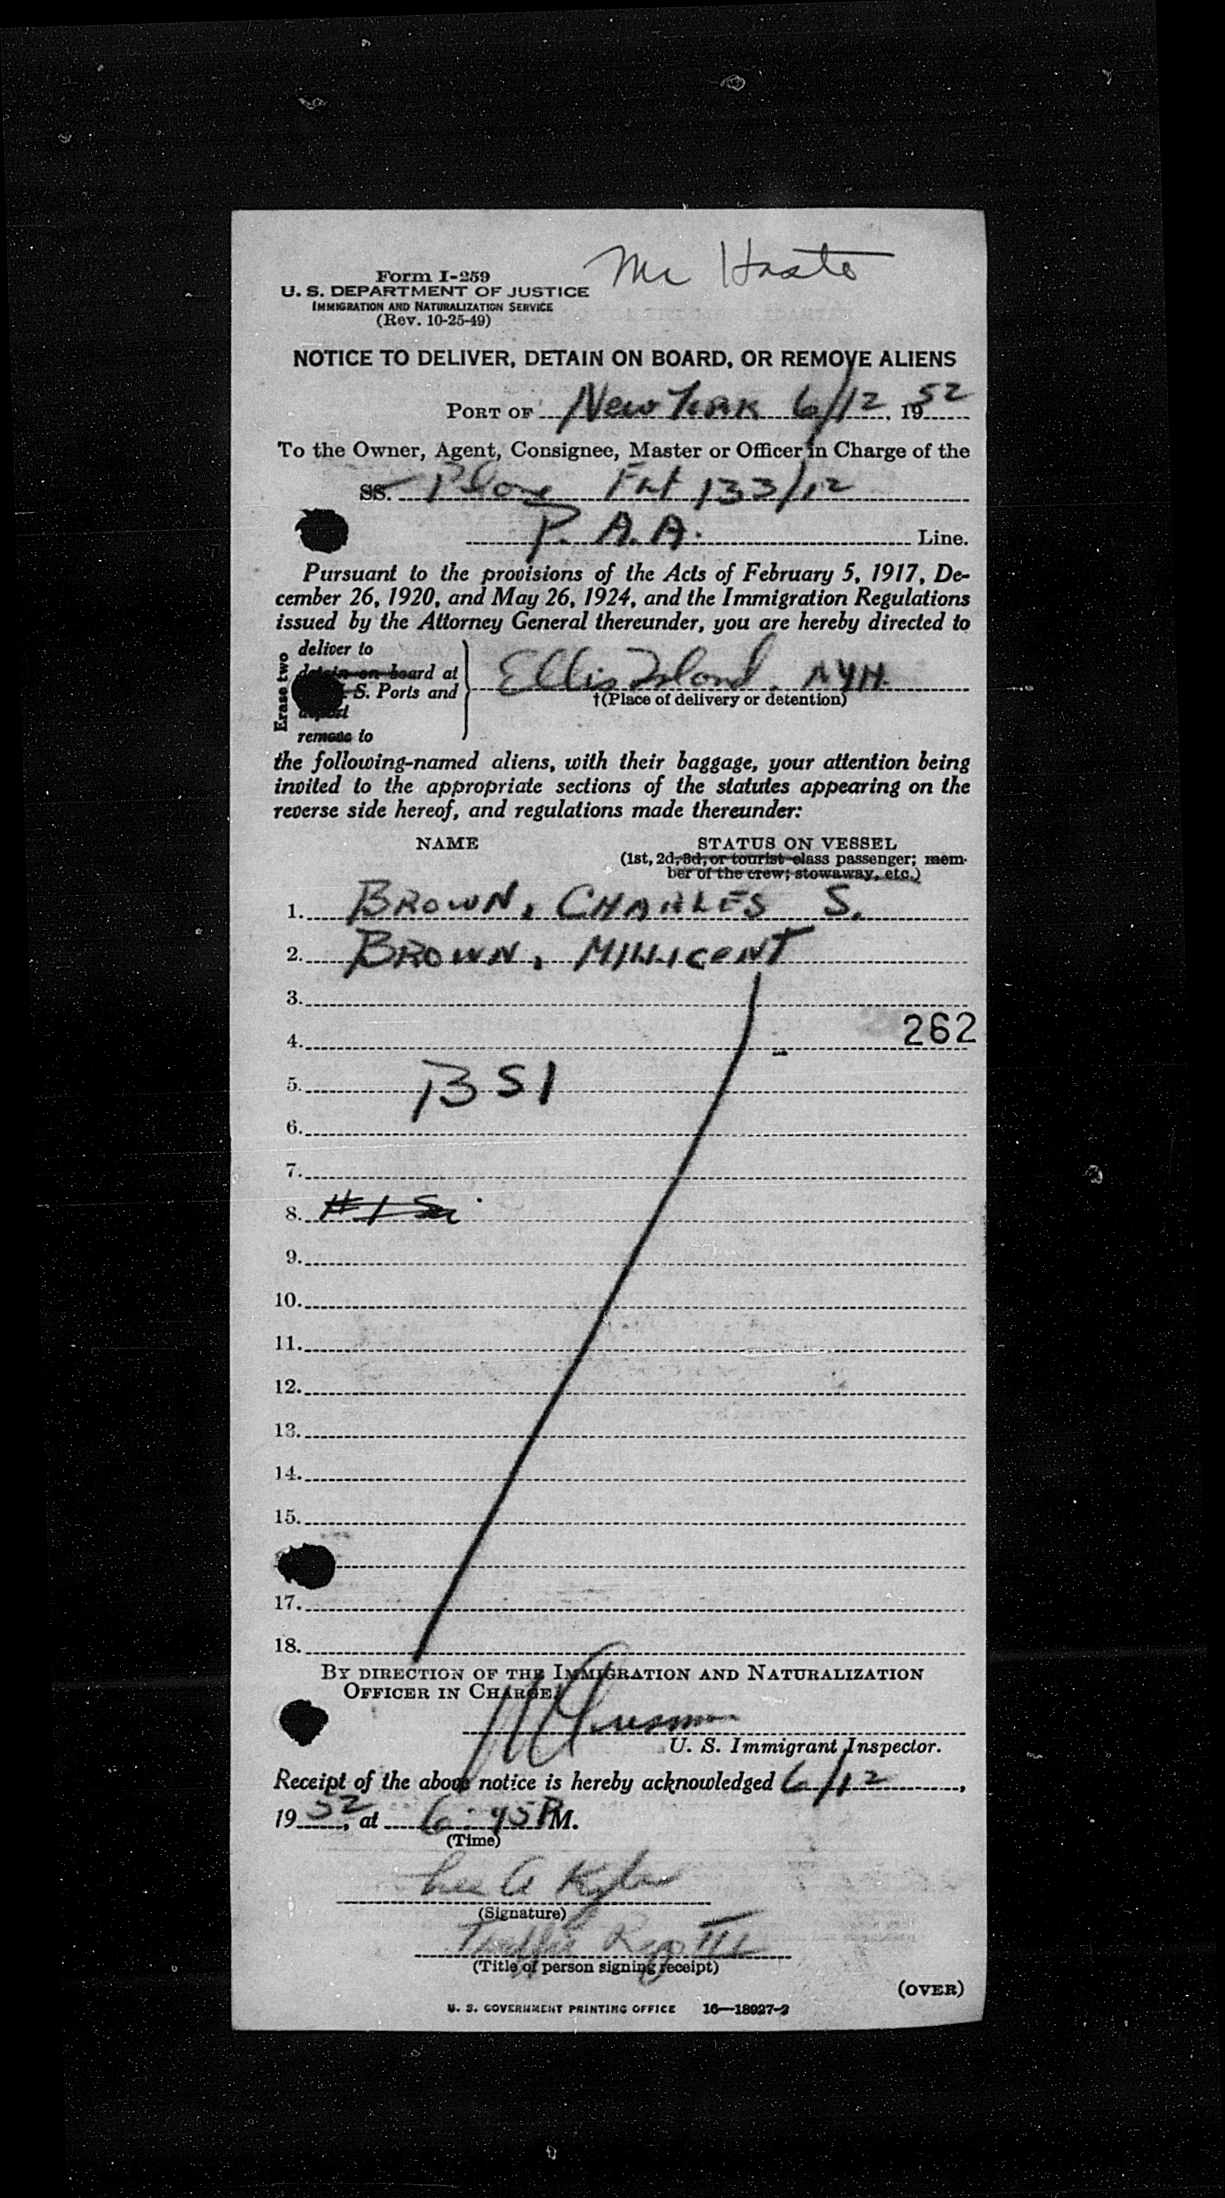 Mr
Form I-259
U. S. DEPARTMENT OF JUSTICE
IMMIGRATION AND NATURALIZATION SERVICE
(Rev. 10-25-49)
NOTICE TO DELIVER, DETAIN ON BOARD, OR REMOVE ALIENS
PORT OF New York 6/12, 1952
To the Owner, Agent, Consignee, Master or Officer in Charge of the
SS. Plane Flt 133/12
P. A. A. Line.
Pursuant to the provisions of the Acts of February 5, 1917, De-
cember 26, 1920, and May 26, 1924, and the Immigration Regulations
issued by the Attorney General thereunder, you are hereby directed to
Erase two
deliver to
detain on board at
S. Ports and
remove to
Ellis Island, NYH.
†(Place of delivery or detention)
the following-named aliens, with their baggage, your attention being
invited to the appropriate sections of the statutes appearing on the
reverse side hereof, and regulations made thereunder:
NAME STATUS ON VESSEL
(1st, 2d, 3d, or tourist class passenger; mem-
ber of the crew; stowaway, etc.)
1. BROWN, CHARLES S.
2. BROWN, MILLICENT
3.
262
4.
5. BSI
6.
7.
8.
9.
10.
11.
12.
13.
14.
15.
17.
18.
BY DIRECTION OF THE IMMIGRATION AND NATURALIZATION
OFFICER IN CHARGE.
U. S. Immigrant Inspector.
Receipt of the above notice is hereby acknowledged 6/12,
1952, at 6:45 PM.
(Time)
Lee A
(Signature)
Traffic Rep III
(Title of person signing receipt)
(OVER)
U. S. GOVERNMENT PRINTING OFFICE 16—18927-2